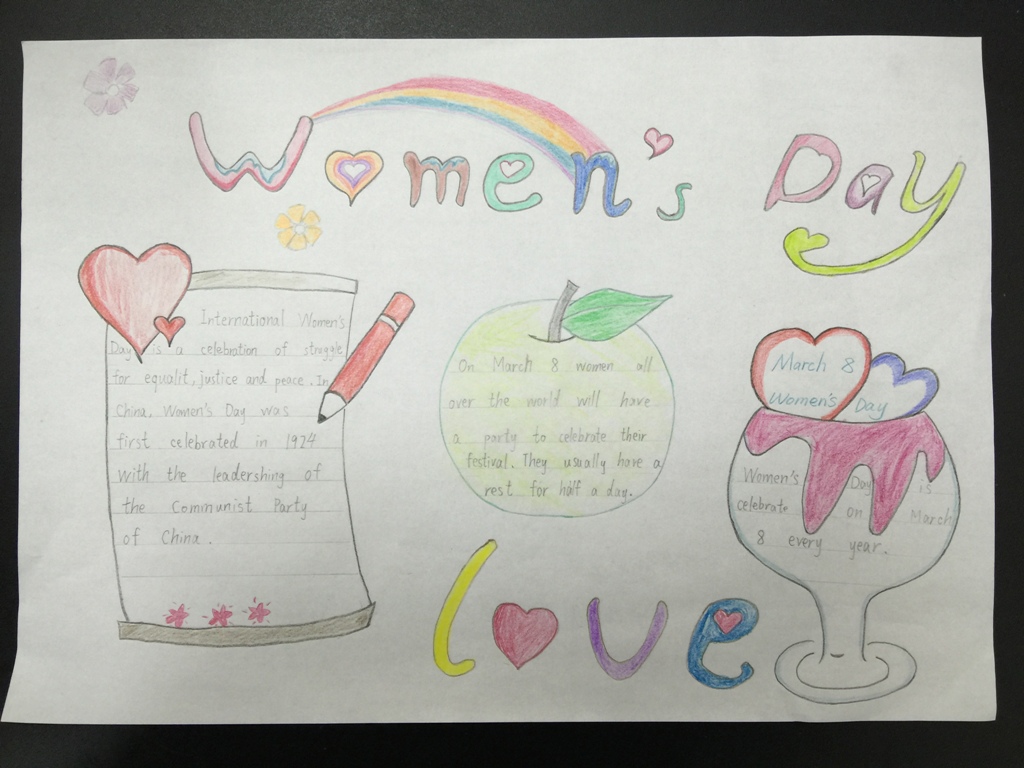 Women's Day
International Women's
Day is a celebration of struggle
for equalit, justice and peace. In
China, Women's Day was
first celebrated in 1924
with the leadershing of
the Communist Party
of China.
On March 8 women all
over the world will have
a party to celebrate their
festival. They usually have a
rest for half a day.
March 8
Women's Day
Women's Day is
celebrate on March
8 every year.
love